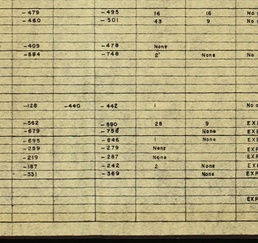 -479 -495 16 16 No
-460 -501 43 9 No
-409 -478 None
-684 -748 2 None No
-128 -440 -442 1 No
-562 -590 28 9 EXP
-679 -756 1 None EXP
-695 -846 1 None EXP
-259 -279 None EXP
-219 -287 None EXP
-187 -242 2 None EXP
-331 -369 None EXP
EXP